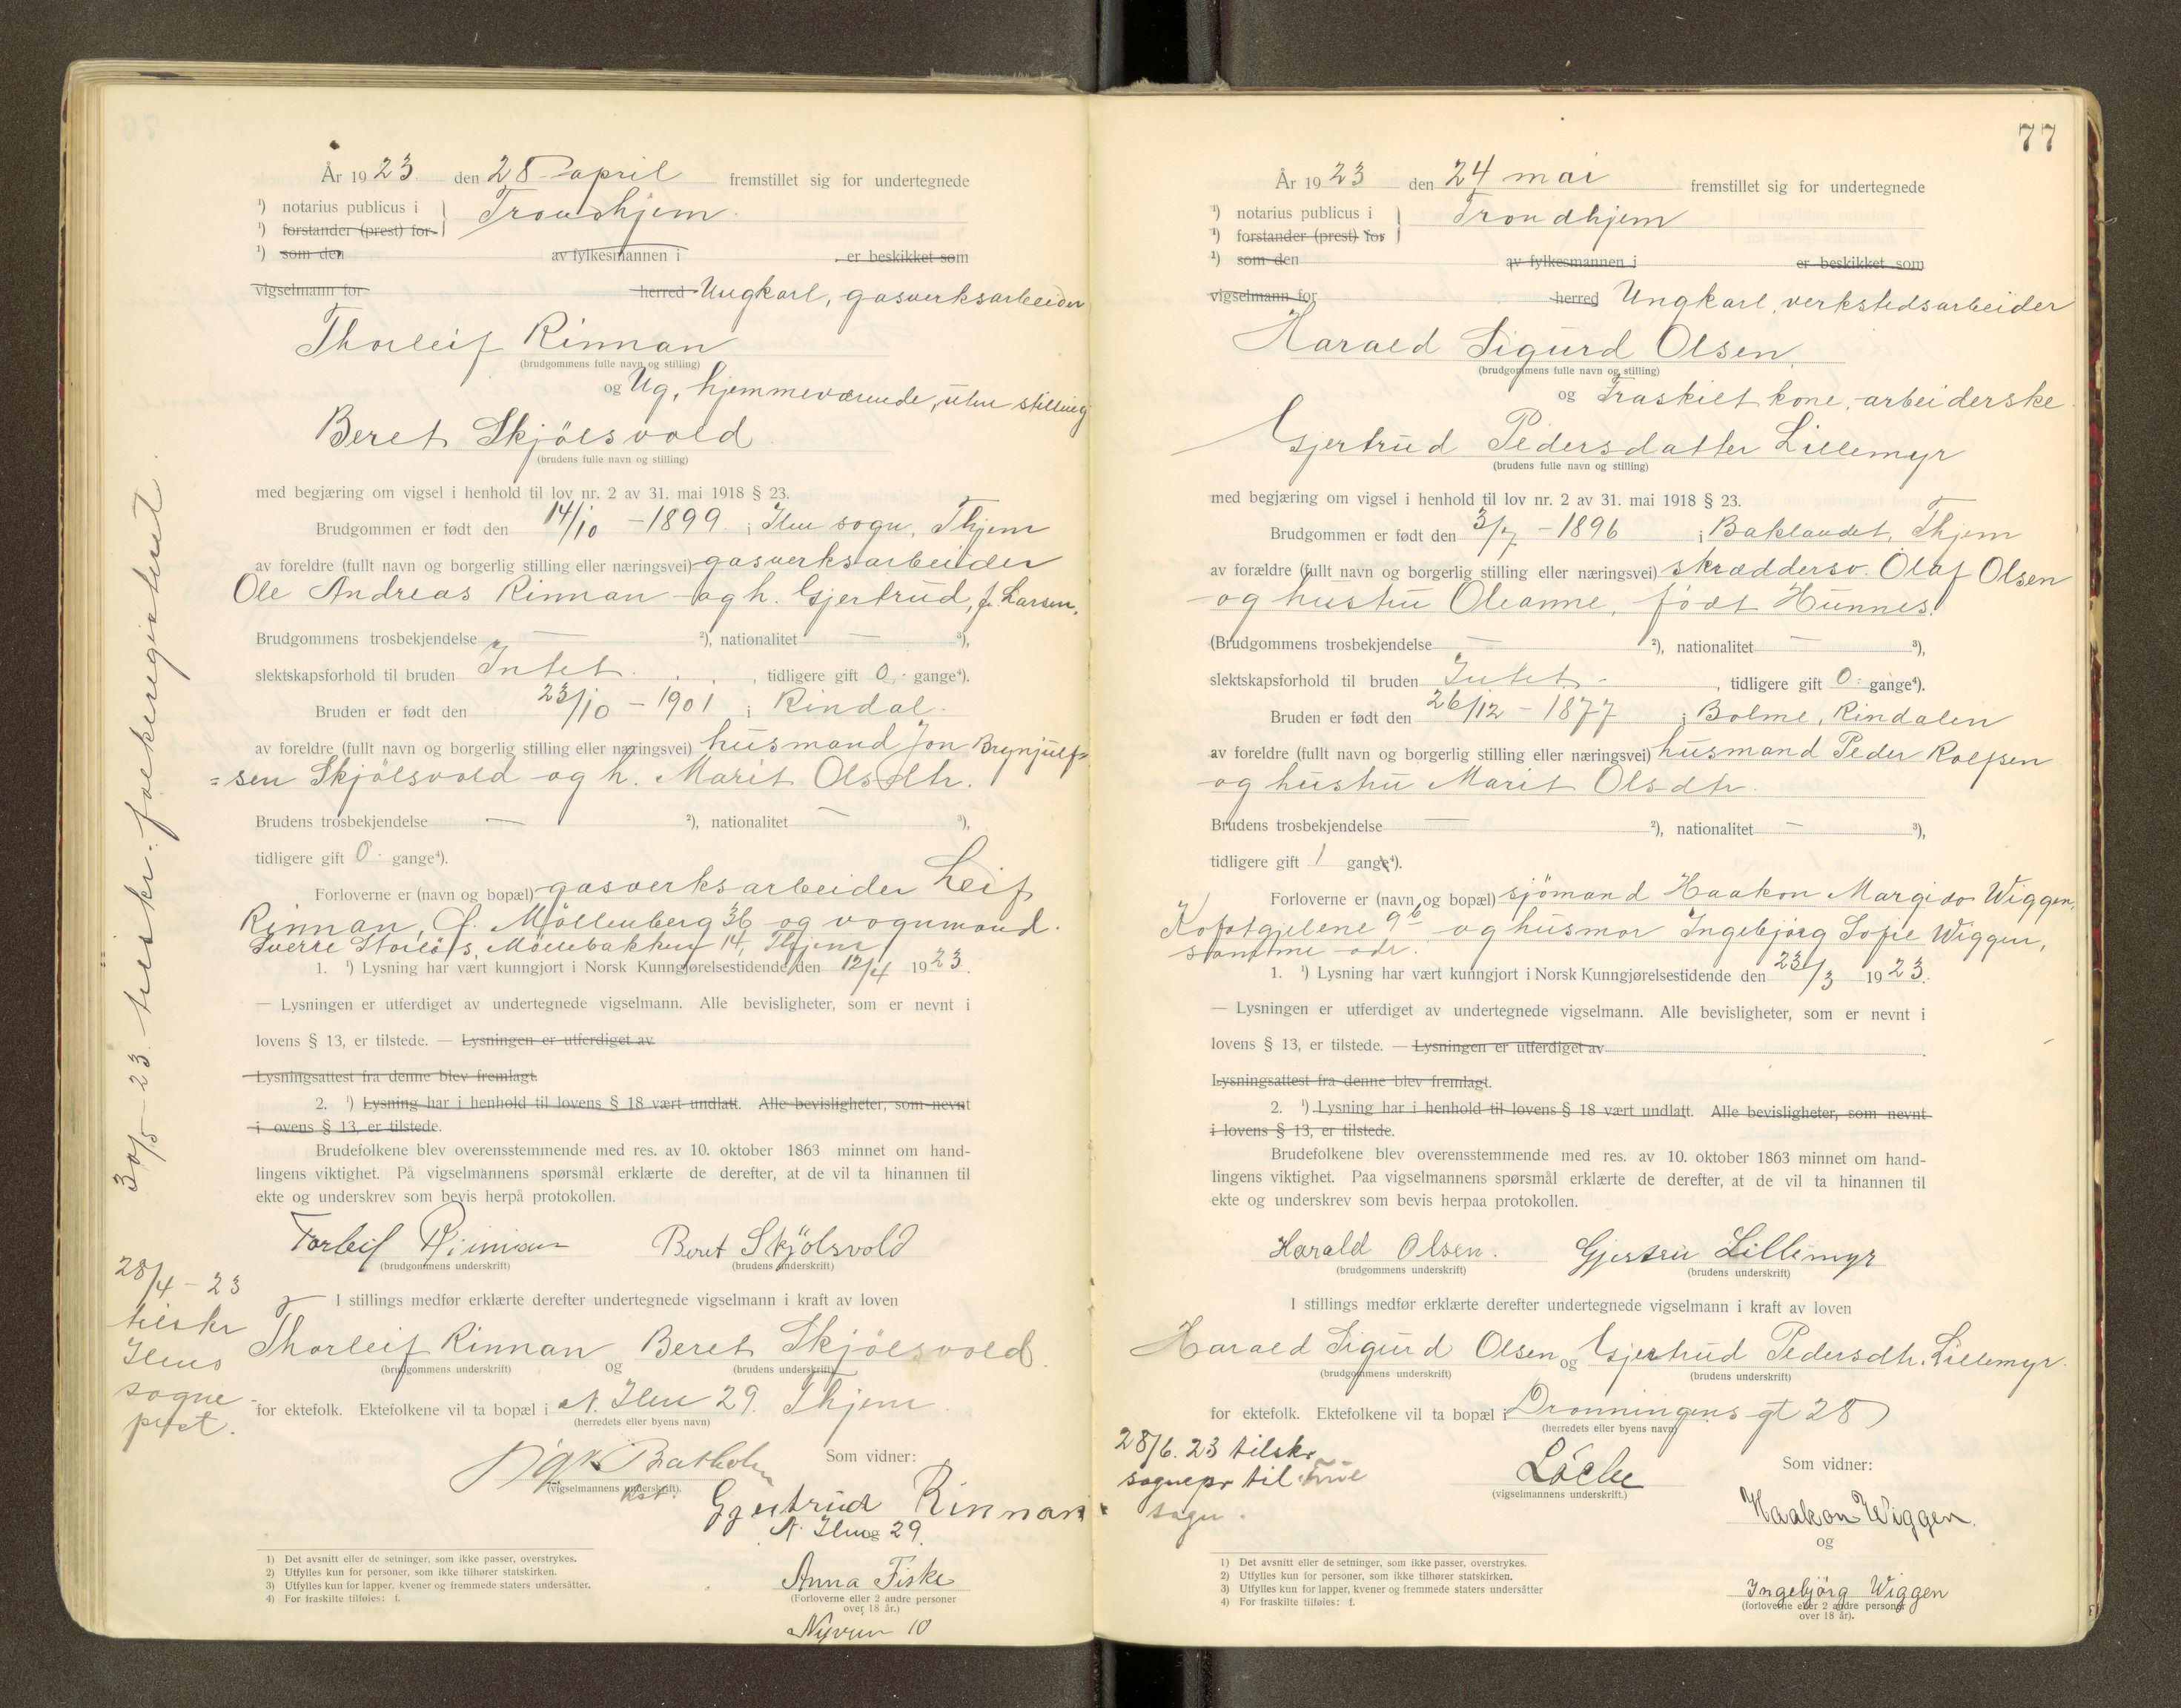 År 1923 den 28 april fremstillet sig for undertegnede
¹) notarius publicus i Trondhjem.
¹) forstander (prest) for
¹) som den av fylkesmannen i er beskikket som
vigselmann for herred Ungkarl, gasverksarbeider
Thorleif Rinnan
(brudgommens fulle navn og stilling)
og Ug, hjemmeværende, uten stilling
Beret Skjölsvold
(brudens fulle navn og stilling)
med begjæring om vigsel i henhold til lov nr. 2 av 31. mai 1918 § 23.
Brudgommen er født den 14/10 - 1899. i Ilen sogn, Thjem
av foreldre (fullt navn og borgerlig stilling eller næringsvei) gasverksarbeider
Ole Andreas Rinnan og h. Gjertrud, f. Larsen.
Brudgommens trosbekjendelse — ²), nationalitet — ³),
slektskapsforhold til bruden Intet. , tidligere gift 0 gange⁴).
Bruden er født den 23/10 - 1901 i Rindal.
av foreldre (fullt navn og borgerlig stilling eller næringsvei) husmand Jon Brynjulf=
=sen Skjölsvold og h. Marit Olsdtr.
Brudens trosbekjendelse — ²), nationalitet — ³),
tidligere gift 0 gange⁴).
Forloverne er (navn og bopæl) gasverksarbeider Leif
Rinnan, Ø. Möllenberg 36 og vognmand.
Sverre Storlös, Möllebakken 14, Thjem
1. ¹) Lysning har vært kunngjort i Norsk Kunngjørelsestidende den 12/4 1923.
— Lysningen er utferdiget av undertegnede vigselmann. Alle bevisligheter, som er nevnt i
lovens § 13, er tilstede. — Lysningen er utferdiget av
Lysningsattest fra denne blev fremlagt.
2. ¹) Lysning har i henhold til lovens § 18 vært undlatt. Alle bevisligheter, som nevnt
i ovens § 13, er tilstede.
Brudefolkene blev overensstemmende med res. av 10. oktober 1863 minnet om hand-
lingens viktighet. På vigselmannens spørsmål erklærte de derefter, at de vil ta hinannen til
ekte og underskrev som bevis herpå protokollen.
Torleif Rinnan Beret Skjölsvold
(brudgommens underskrift) (brudens underskrift)
I stillings medfør erklærte derefter undertegnede vigselmann i kraft av loven
Thorleif Rinnan og Beret Skjölsvold.
(brudgommens underskrift) (brudens underskrift)
for ektefolk. Ektefolkene vil ta bopæl i N. Ilen 29. Thjem.
(herredets eller byens navn)
Som vidner:
(vigselmannens underskrift).
Kst.
Gjertrud Rinnan
N. Ilen 29.
og
Anna Fiske
(Forloverne eller 2 andre personer
over 18 år.)
10
1) Det avsnitt eller de setninger, som ikke passer, overstrykes.
2) Utfylles kun for personer, som ikke tilhører statskirken.
3) Utfylles kun for lapper, kvener og fremmede staters undersåtter.
4) For fraskilte tilføies: f.
30/5-23. tilskr. folkeregisteret.
28/4-23
tilskr
Ilens
sogne-
prest.
77
År 1923 den 24 mai fremstillet sig for undertegnede
¹) notarius publicus i Trondhjem
¹) forstander (prest) for
¹) som den av fylkesmannen i er beskikket som
vigselmann for herred Ungkarl, verkstedsarbeider
Harald Sigurd Olsen,
(brudgommens fulle navn og stilling)
og Fraskilt kone, arbeiderske
Gjertrud Pedersdatter Lillemyr
(brudens fulle navn og stilling)
med begjæring om vigsel i henhold til lov nr. 2 av 31. mai 1918 § 23.
Brudgommen er født den 3/7 - 1896 i Baklandet, Thjem
av forældre (fullt navn og borgerlig stilling eller næringsvei) skræddersv. Olaf Olsen
og hustru Oleanne, född Hunnes.
(Brudgommens trosbekjendelse — ²), nationalitet — ³),
slektskapsforhold til bruden Intet. , tidligere gift 0 gange⁴).
Bruden er født den 26/12 - 1877 i Bolme, Rindalen
av foreldre (fullt navn og borgerlig stilling eller næringsvei) husmand Peder Rolfsen
og hustru Marit Olsdtr.
Brudens trosbekjendelse — ²), nationalitet — ³),
tidligere gift 1 gange⁴).
Forloverne er (navn og bopæl) sjömand Haakon Margido Wiggen,
9b og husmor Ingebjörg Sofie Wiggen,
samme adr.
1. ¹) Lysning har vært kunngjort i Norsk Kunngjørelsestidende den 23/3 1923.
— Lysningen er utferdiget av undertegnede vigselmann. Alle bevisligheter, som er nevnt i
lovens § 13, er tilstede. — Lysningen er utferdiget av
Lysningsattest fra denne blev fremlagt.
2. ¹) Lysning har i henhold til lovens § 18 vært undlatt. Alle bevisligheter, som nevnt
i lovens § 13, er tilstede.
Brudefolkene blev overensstemmende med res. av 10. oktober 1863 minnet om hand-
lingens viktighet. Paa vigselmannens spørsmål erklærte de derefter, at de vil ta hinannen til
ekte og underskrev som bevis herpaa protokollen.
Harald Olsen. Gjertru Lillemyr
(brudgommens underskrift) (brudens underskrift)
I stillings medfør erklærte derefter undertegnede vigselmann i kraft av loven
Harald Sigurd Olsen og Gjertrud Pedersdtr. Lillemyr.
(brudgommens underskrift) (brudens underskrift)
for ektefolk. Ektefolkene vil ta bopæl i Dronningens gt 28
(herredets eller byens navn)
28/6. 23 tilskr.
sognepr til
sogn.
(vigselmannens underskrift.)
Som vidner:
Haakon Wiggen.
og
Ingebjörg Wiggen
(forloverne eller 2 andre personer
over 18 år).
1) Det avsnitt eller de setninger, som ikke passer, overstrykes.
2) Utfylles kun for personer, som ikke tilhører statskirken.
3) Utfylles kun for lapper, kvener og fremmede staters undersåtter
4) For fraskilte tilføies: f.